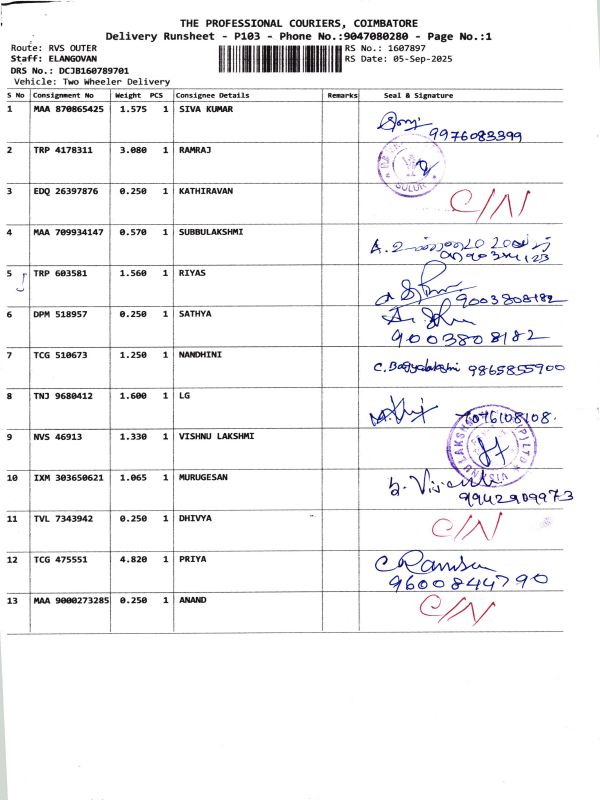 THE PROFESSIONAL COURIERS, COIMBATORE
Delivery Runsheet - P103 - Phone No.:9047080280 - Page No.:1
Route: RVS OUTER RS No.: 1607897
Staff: ELANGOVAN RS Date: 05-Sep-2025
DRS No.: DCJB160789701
Vehicle: Two Wheeler Delivery
S No Consignment No Weight PCS Consignee Details Remarks Seal & Signature
1 MAA 870865425 1.575 1 SIVA KUMAR
9976083399
2 TRP 4178311 3.080 1 RAMRAJ
SULUR
3 EDQ 26397876 0.250 1 KATHIRAVAN C/N
4 MAA 709934147 0.570 1 SUBBULAKSHMI
5 TRP 603581 1.560 1 RIYAS
9003808182
6 DPM 518957 0.250 1 SATHYA
9003808182
7 TCG 510673 1.250 1 NANDHINI
C. Bagyalakshmi 9865855900
8 TNJ 9680412 1.600 1 LG
7076108108.
9 NVS 46913 1.330 1 VISHNU LAKSHMI
10 IXM 303650621 1.065 1 MURUGESAN
9942909973
11 TVL 7343942 0.250 1 DHIVYA C/N
12 TCG 475551 4.820 1 PRIYA
9600844790
13 MAA 9000273285 0.250 1 ANAND C/N